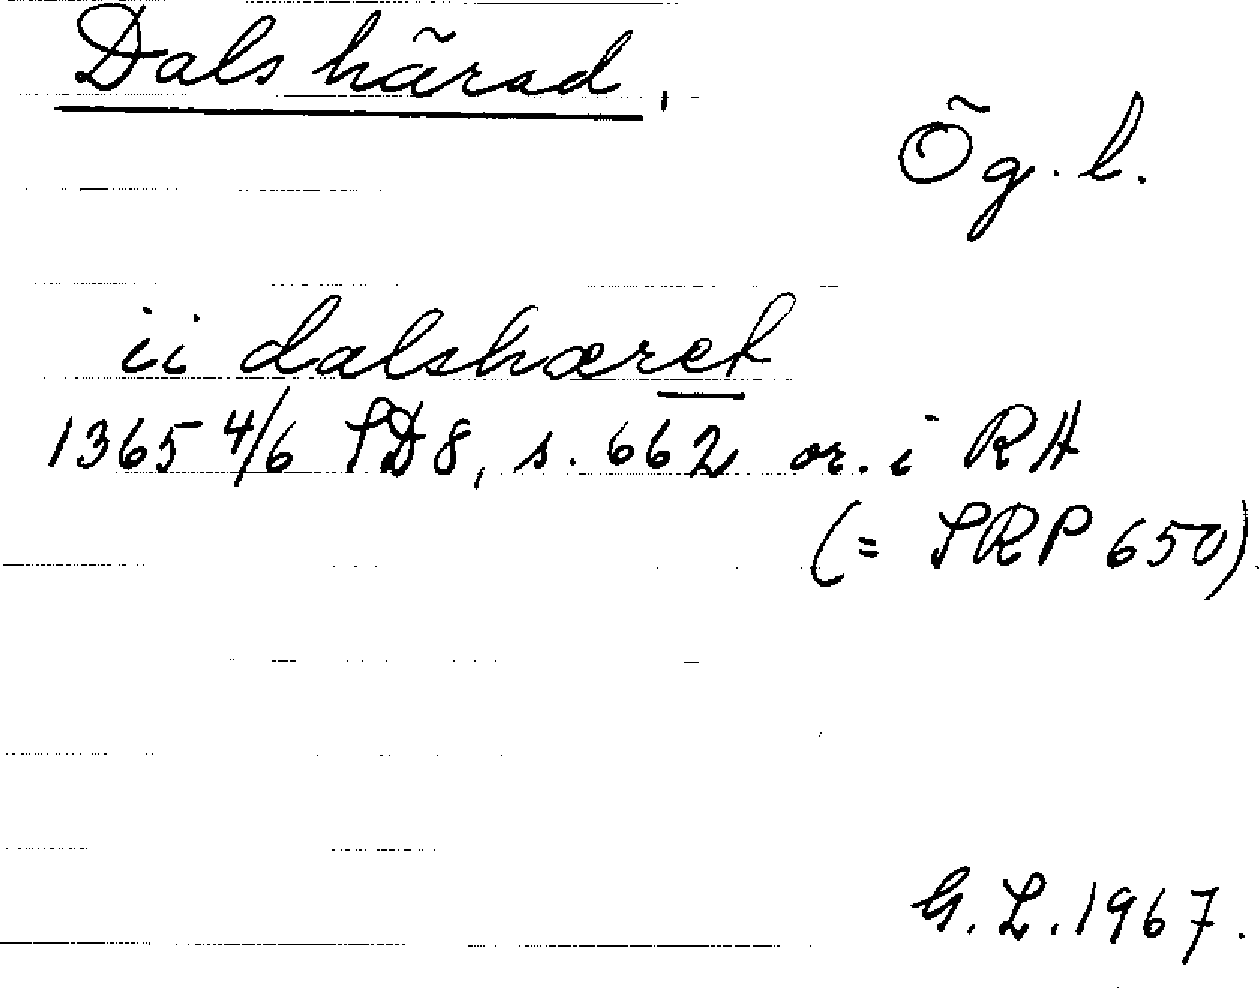 Dals härad,
Ög. l.
ii dalshæret
1365 4/6 SD8, s. 662 or. i RA
(= SRP 650).
G. L. 1967.